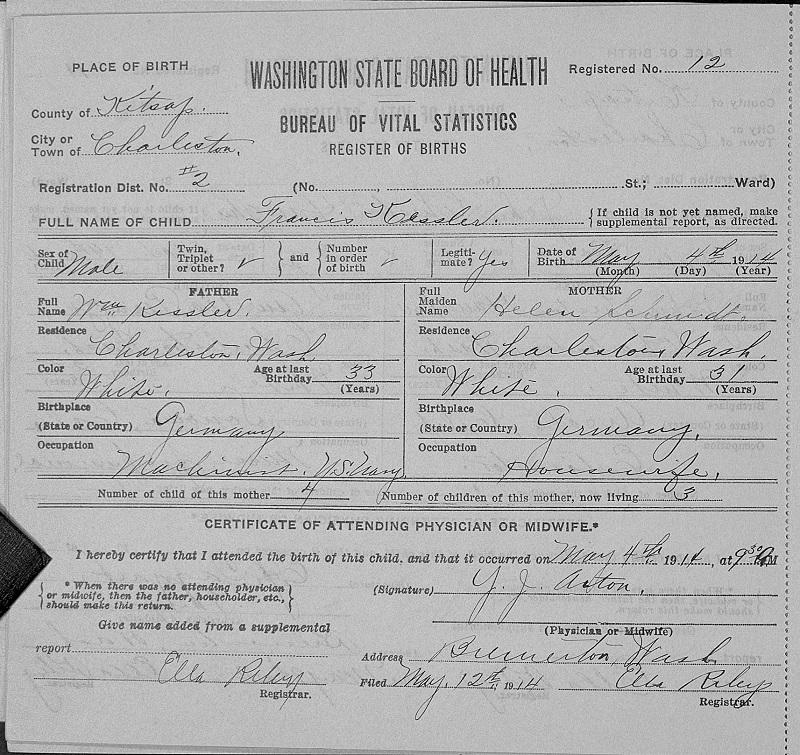 PLACE OF BIRTH
WASHINGTON STATE BOARD OF HEALTH
Registered No. 12
County of Kitsap.
BUREAU OF VITAL STATISTICS
City or Town of Charleston.
REGISTER OF BIRTHS
Registration Dist. No. #2 (No. , St.; Ward)
FULL NAME OF CHILD Francis Kessler. { If child is not yet named, make supplemental report, as directed.
Sex of Child Male Twin, Triplet or other? ✓ } and { Number in order of birth ✓ Legitimate? Yes Date of Birth May 4th 1914
(Month) (Day) (Year)
FATHER MOTHER
Full Name Wm Kessler. Full Maiden Name Helen Schmidt.
Residence Charleston, Wash. Residence Charleston, Wash.
Color White. Age at last Birthday 33 (Years) Color White. Age at last Birthday 31 (Years)
Birthplace (State or Country) Germany Birthplace (State or Country) Germany.
Occupation Machinist, U.S. Navy Occupation Housewife.
Number of child of this mother 4 Number of children of this mother, now living 3
CERTIFICATE OF ATTENDING PHYSICIAN OR MIDWIFE.*
I hereby certify that I attended the birth of this child, and that it occurred on May 4th, 1914, at 9 30 M
{ * When there was no attending physician or midwife, then the father, householder, etc., should make this return. }
(Signature) Axton.
(Physician or Midwife)
Give name added from a supplemental
report
Address Bremerton, Wash.
Ella Riley
Registrar.
Filed May, 12th, 1914 Ella Riley
Registrar.